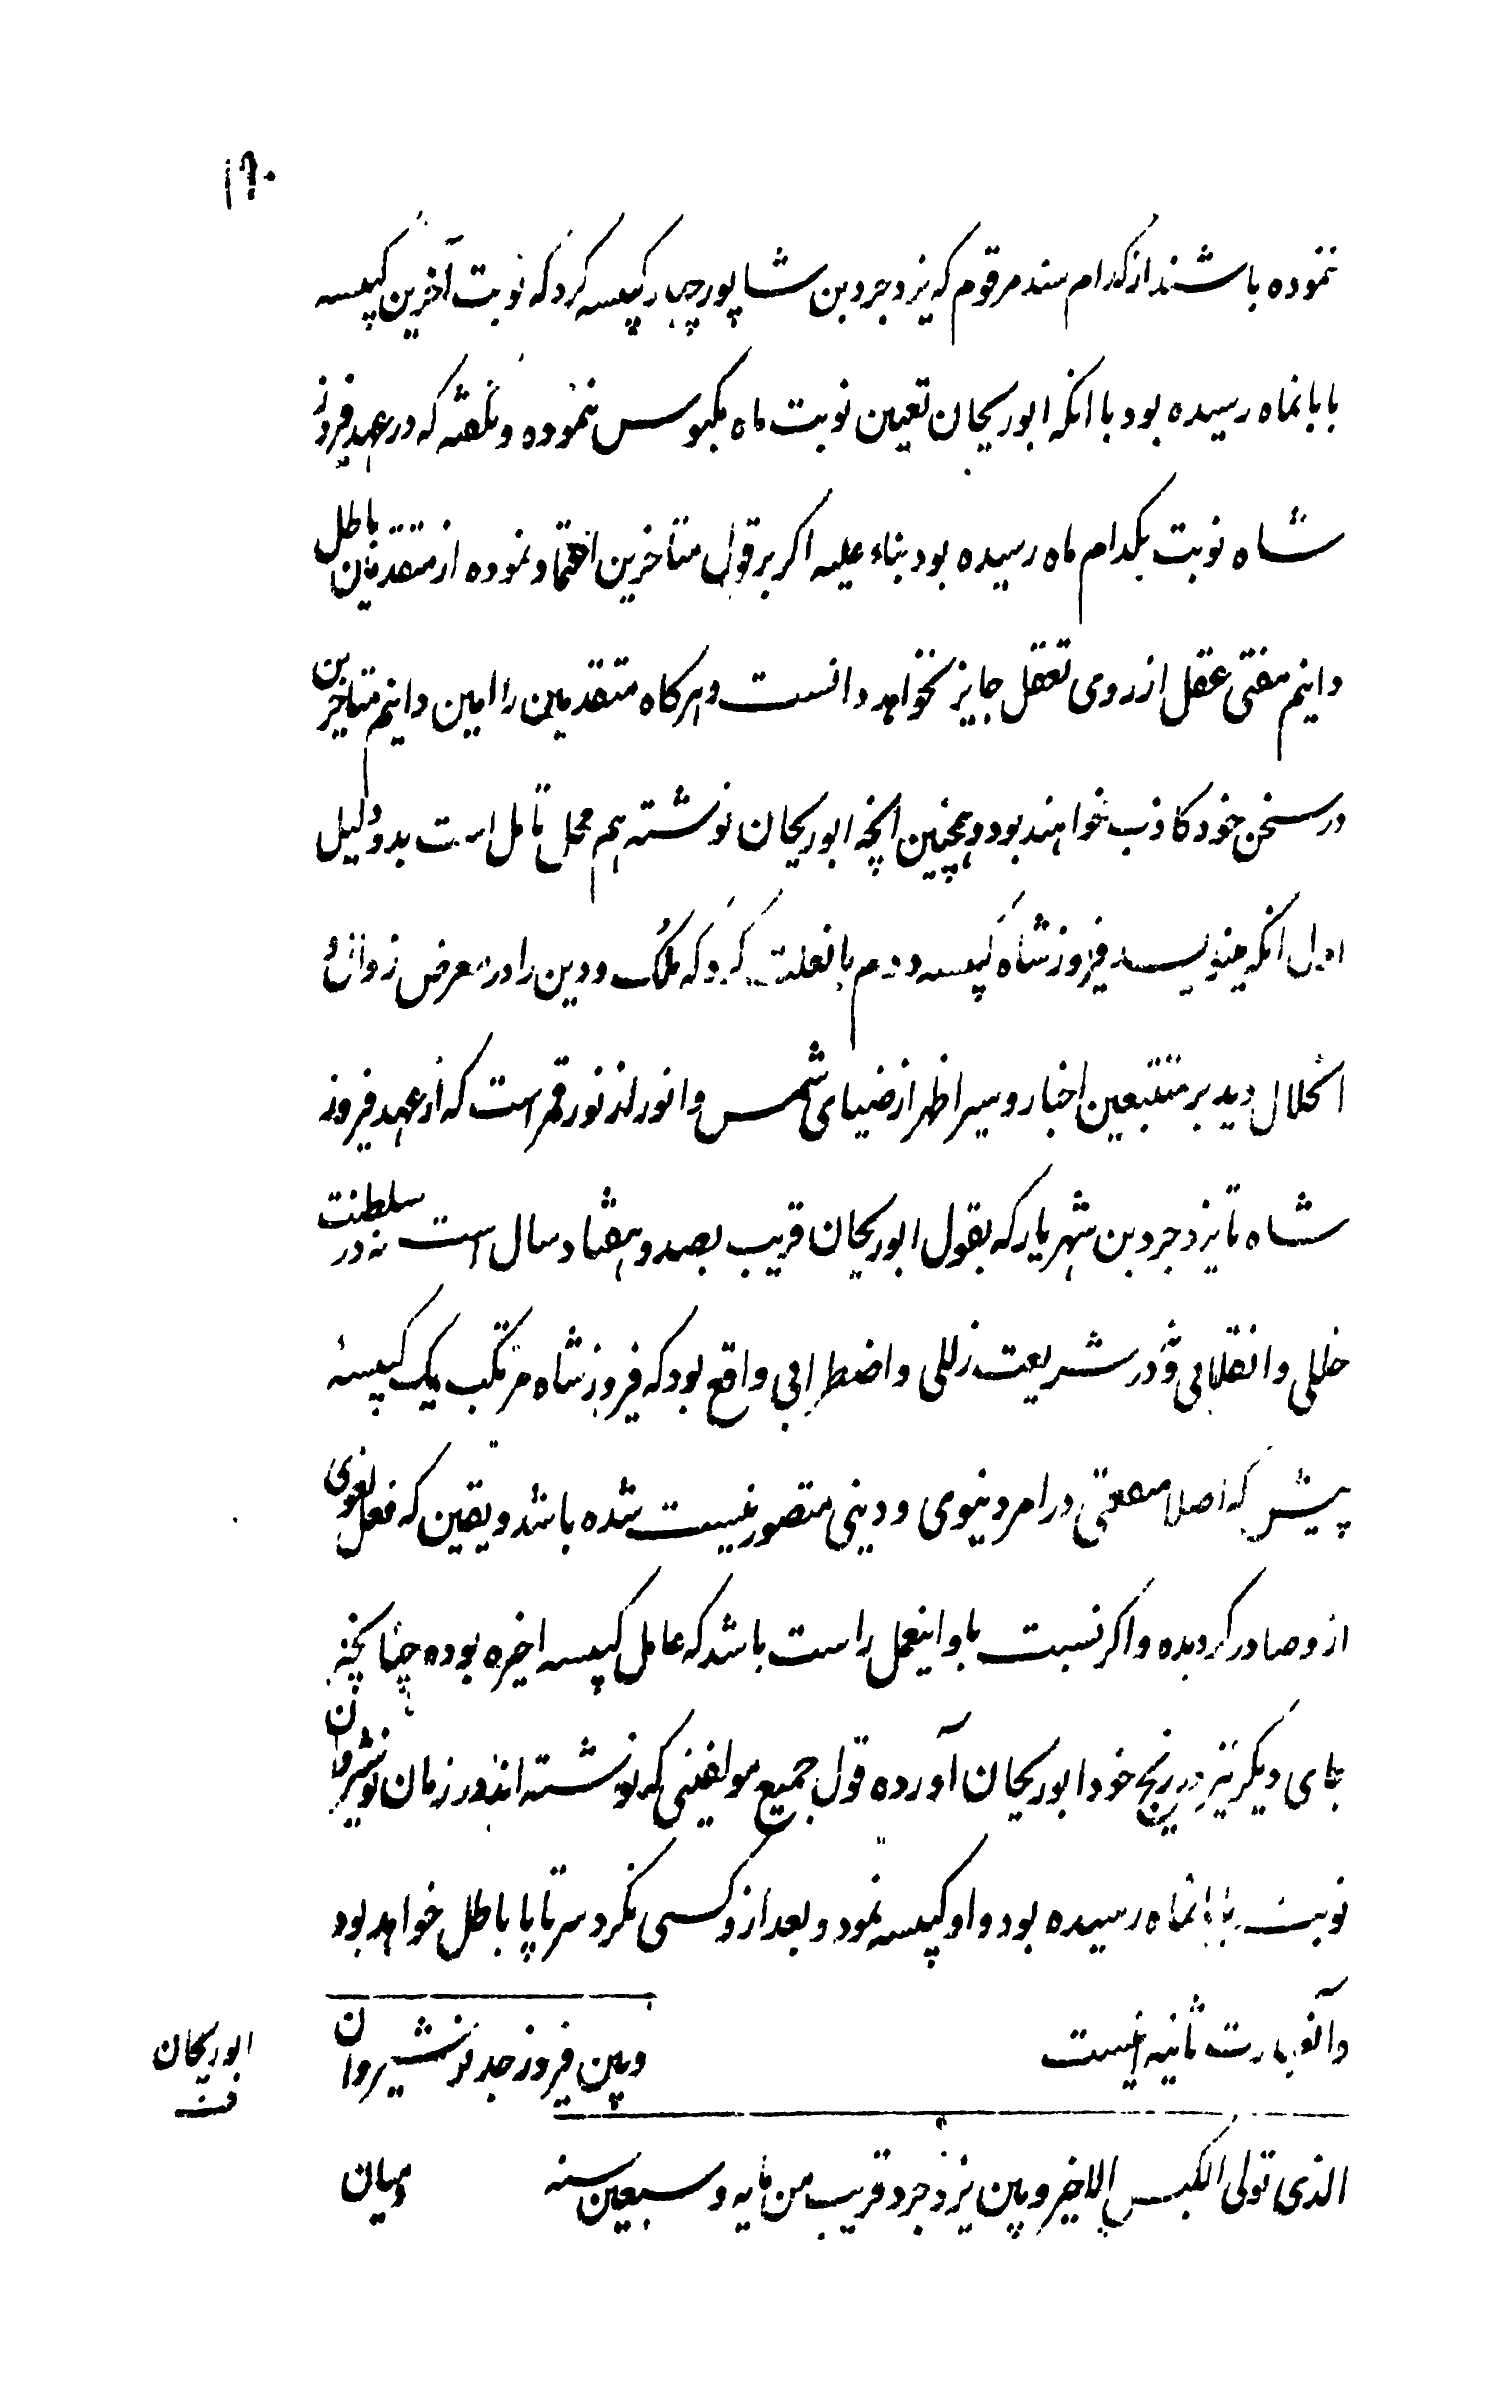 ۱۹۰
ننموده باشند از کدام سند مرقوم که یزدجرد بن شاپور چهار کپیسه کرد که نوبت آخرین کپیسه
بابانماه رسیده بود با انکه ابوریحان تعیین نوبت ماه مکبوس ننموده و نکفته که در عهد فیروز
شاه نوبت بکدام ماه رسیده بود بناء علیه اکر بر قول متاخرین اعتماد نموده از متقدمین باطل
دانیم مفتی عقل از روی تعقل جایز نخواهد دانست و هرکاه متقدمین را امین دانیم متاخرین
در سخن خود کاذب خواهند بود و همچنین انچه ابوریحان نوشته هم محل تامل است بدو دلیل
اول انکه مینویسد فیروز شاه کپیسه دوم بانعلت کرد که ملک و دین را در معرض زوال و
انحلال دید بر متتبعین اخبار و سیر اظهر از ضیای شمس و انور از نور قمر است که از عهد فیروز
شاه تا یزدجرد بن شهریار که بقول ابوریحان قریب بصد و هفتاد سال است نه در سلطنت
خللی و انقلابی و نه در شریعت زللی و اضطرابی واقع بود که فیروز شاه مرتکب یک کپیسهٔ
پیش که اصلا منفعتی در امر دنیوی و دینی متصور نیست شده باشد و یقین که فعل لغوی
ازو صادر کردیده و اکر نسبت باو اینعمل راست باشد که عامل کپیسه اخیره بوده چنانچه
جای دیکر نیز در زیج خود ابوریحان آورده قول جمیع مولفینی که نوشته اند در زمان نوشیروان
نوبت بابانماه رسیده بود و او کپیسه نمود و بعد ازو کسی نکرد سر تا پا باطل خواهد بود
وآنعبارت ثانیه اینست وبین فیروز جد نوشیروان
ابوریحان
الذی تولی الکبس الاخیر وبین یزدجرد قریب من مایه وسبعین سنه ومیان